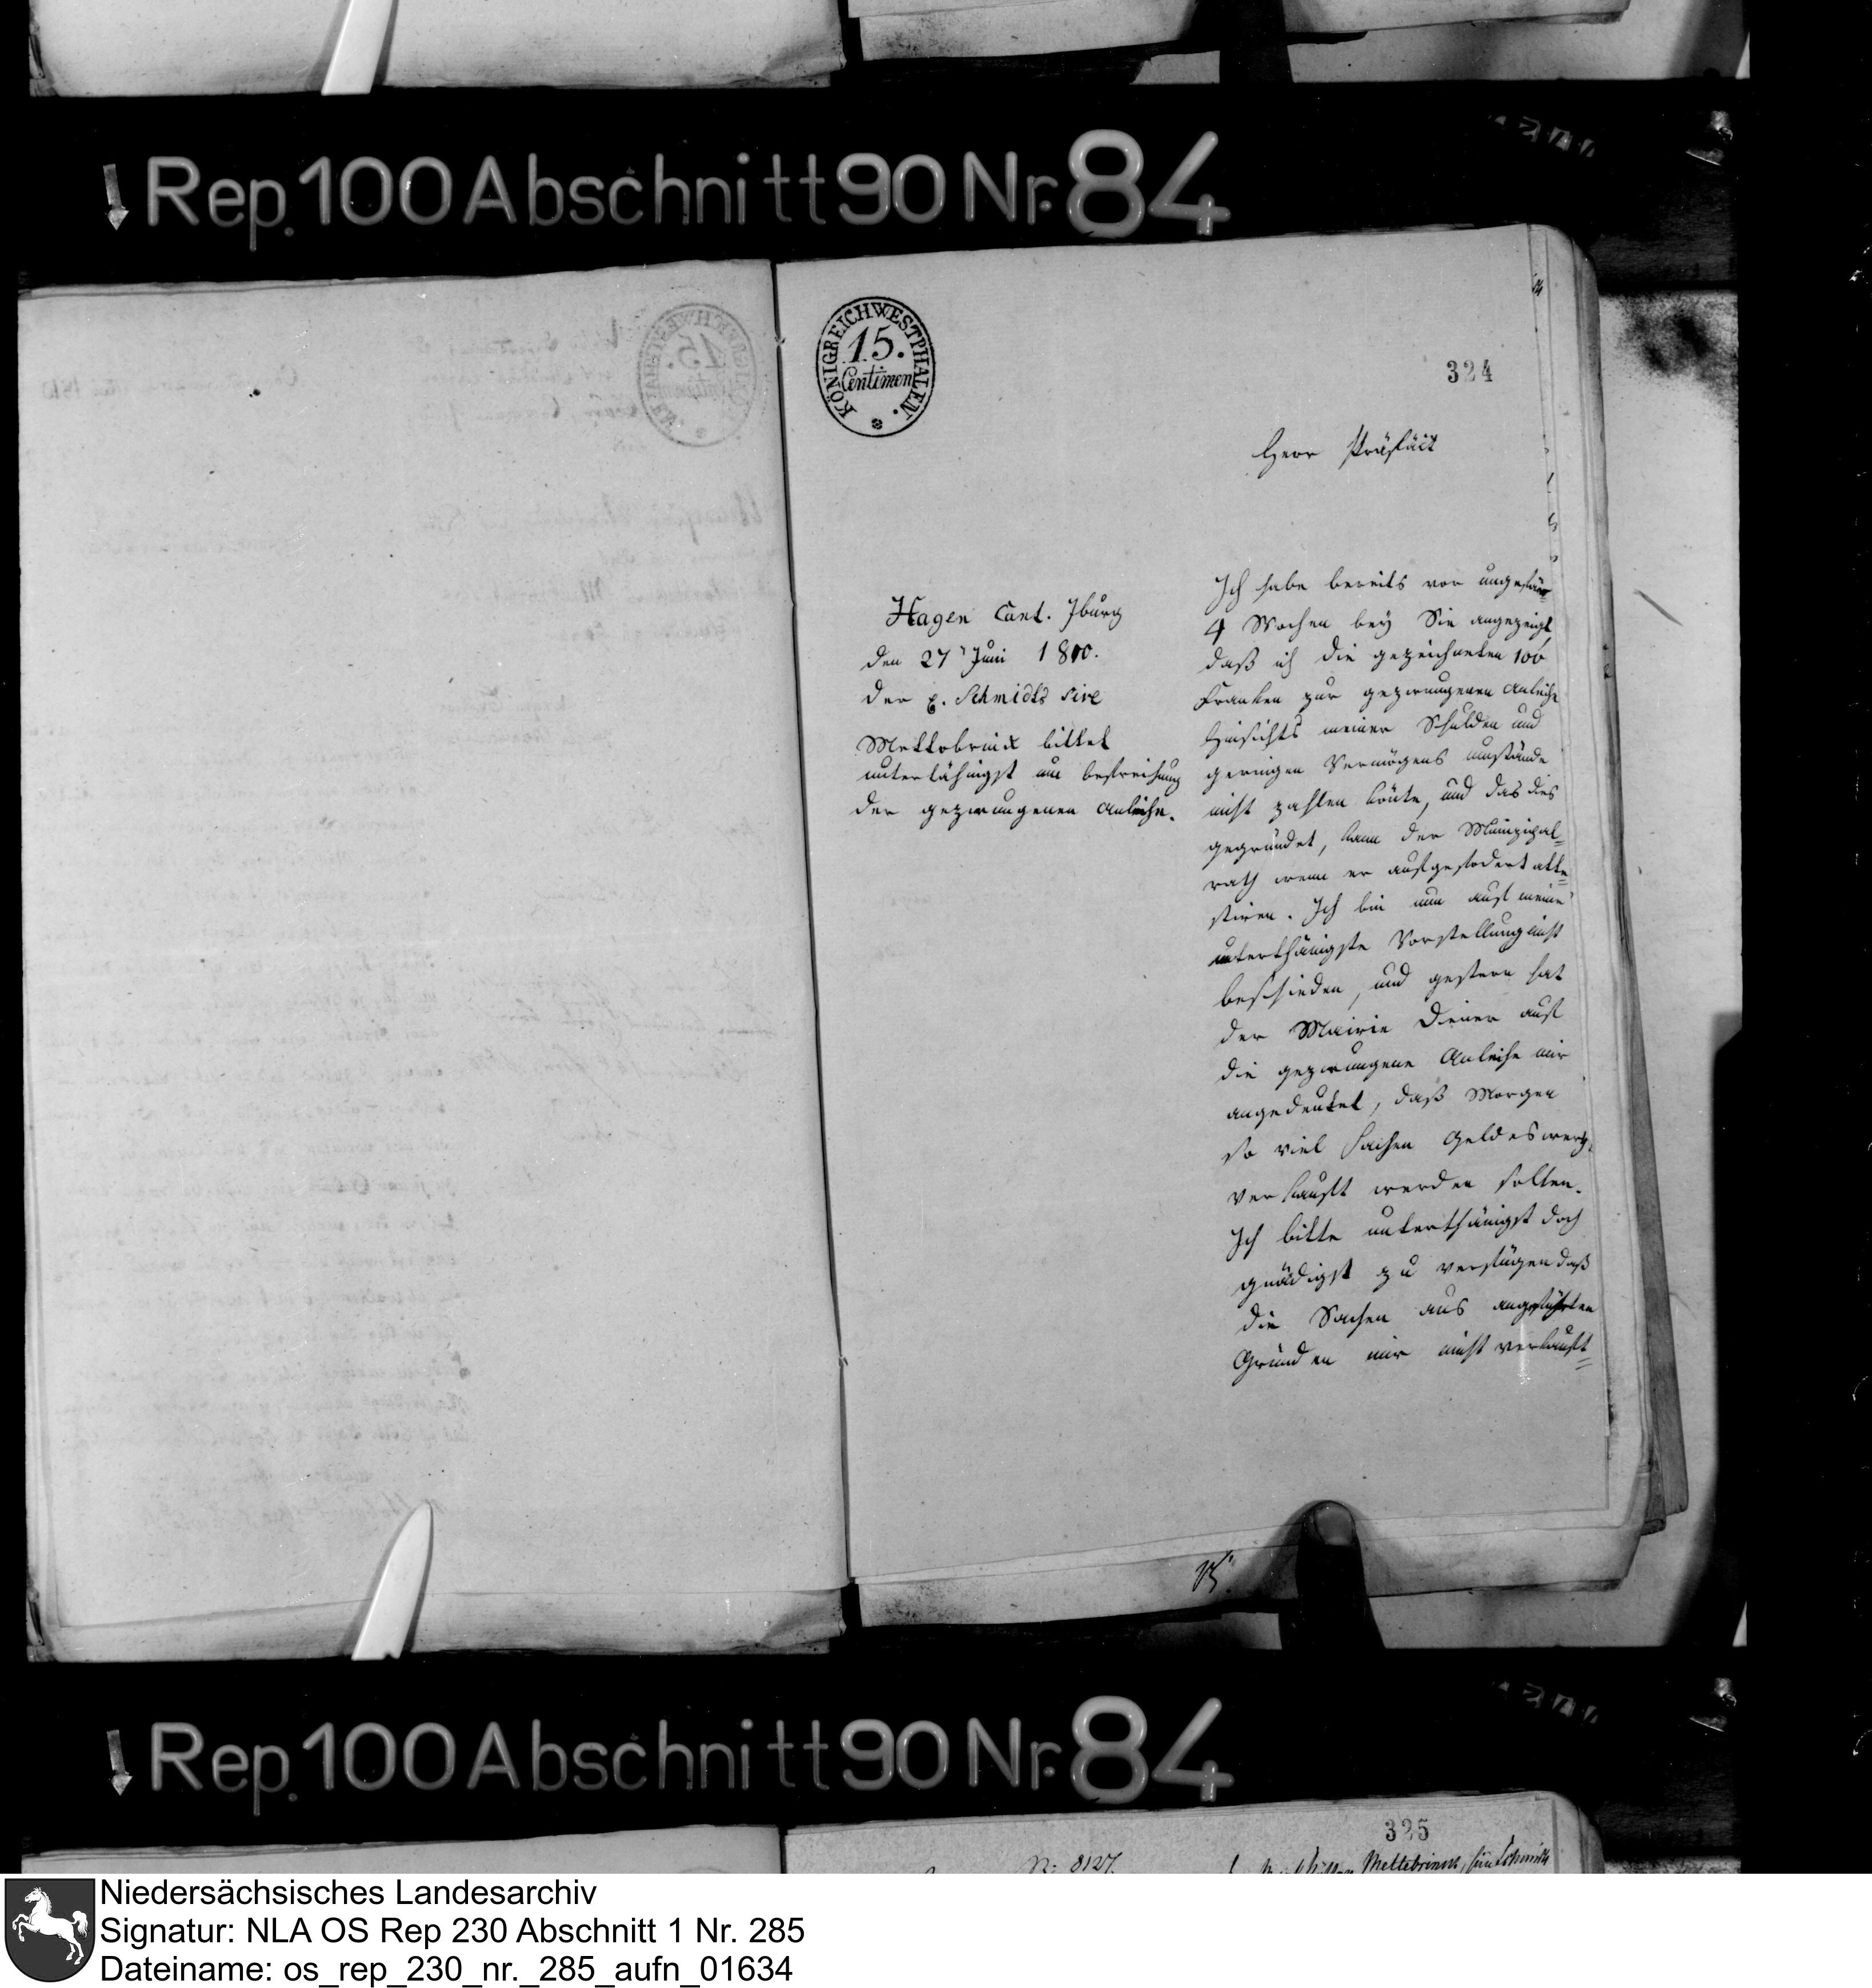 Rep. 100 Abschnitt 90 Nr. 84
KÖNIGREICH WESTPHALEN.
15.
Centimen
324
Herr Präfäct
Hagen Cant. Iburg
den 27 Juni 1810.
der Schmidts sive
Mettebrinck bittet
unterthänigst um befreihung
der gezwungenen Anleihe.
Ich habe bereits vor ungefähr
4 Wochen beÿ Sie angezeigt
daß ich die gezeichneten 100
Franken zur gezwungenen Anleihe
Hinsichts meiner Schulden und
geringen Vermögens umstände
nicht zahlen könte, und das dies
gegründet, kann der Munizipal=
rath wenn er aufgefodert atte=
stiren. Ich bin nun auf meine
unterthänigste Vorstellung nicht
beschieden, und gestern hat
der Mairie Diener auf
die gezwungene Anleihe mir
angedeutet, daß Morgen
so viel Sachen Geldeswerth
verkauft werden sollen.
Ich bitte unterthänigst doch
gnädigst zu verfügen daß
die Sachen aus angeführten
Gründen mir nicht verkauft
=
Rep. 100 Abschnitt 90 Nr. 84
325
N: 8127.
Mettebrinck, sive Schmidt
Niedersächsisches Landesarchiv
Signatur: NLA OS Rep 230 Abschnitt 1 Nr. 285
Dateiname: os_rep_230_nr._285_aufn_01634